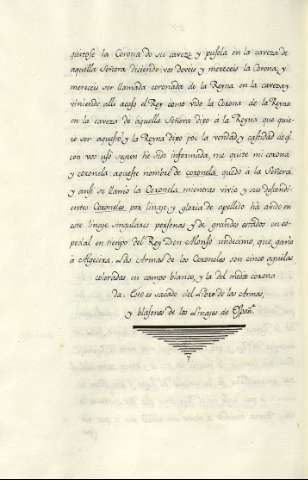 quitose la Corona de su caveza y pusola en la caveza de
aquella Señora diciendo vos deveis y mereceis la corona, y
mereceis ser llamada coronada de la Reyna en la caveza y
viniendo alli acaso el Rey como vido la Corona de la Reyna
en la caveza de aquella Señora dijo a la Reyna que quie-
re ser aquesto, y la Reyna dijo por la verdad y castidad
con vos usó segun he sido informada, me quité mi corona
y coronela aqueste nombre de coronela quedó a la Señora
y ansi se llamó la Coronela mientras vivio y sus descendi-
entes Coroneles por linage y gloria de apellido ha avido en
este linage singulares personas y de grandes estados en es-
pecial en tiempo del Rey Don Alonso undecimo, que ganó
a Algecira. Las Armas de los Coroneles son cinco aguilas
coloradas en campo blanco, y la del medio corona
da. Esto es sacado del Libro de las Armas,
y blasones de los Linajes de Españ.